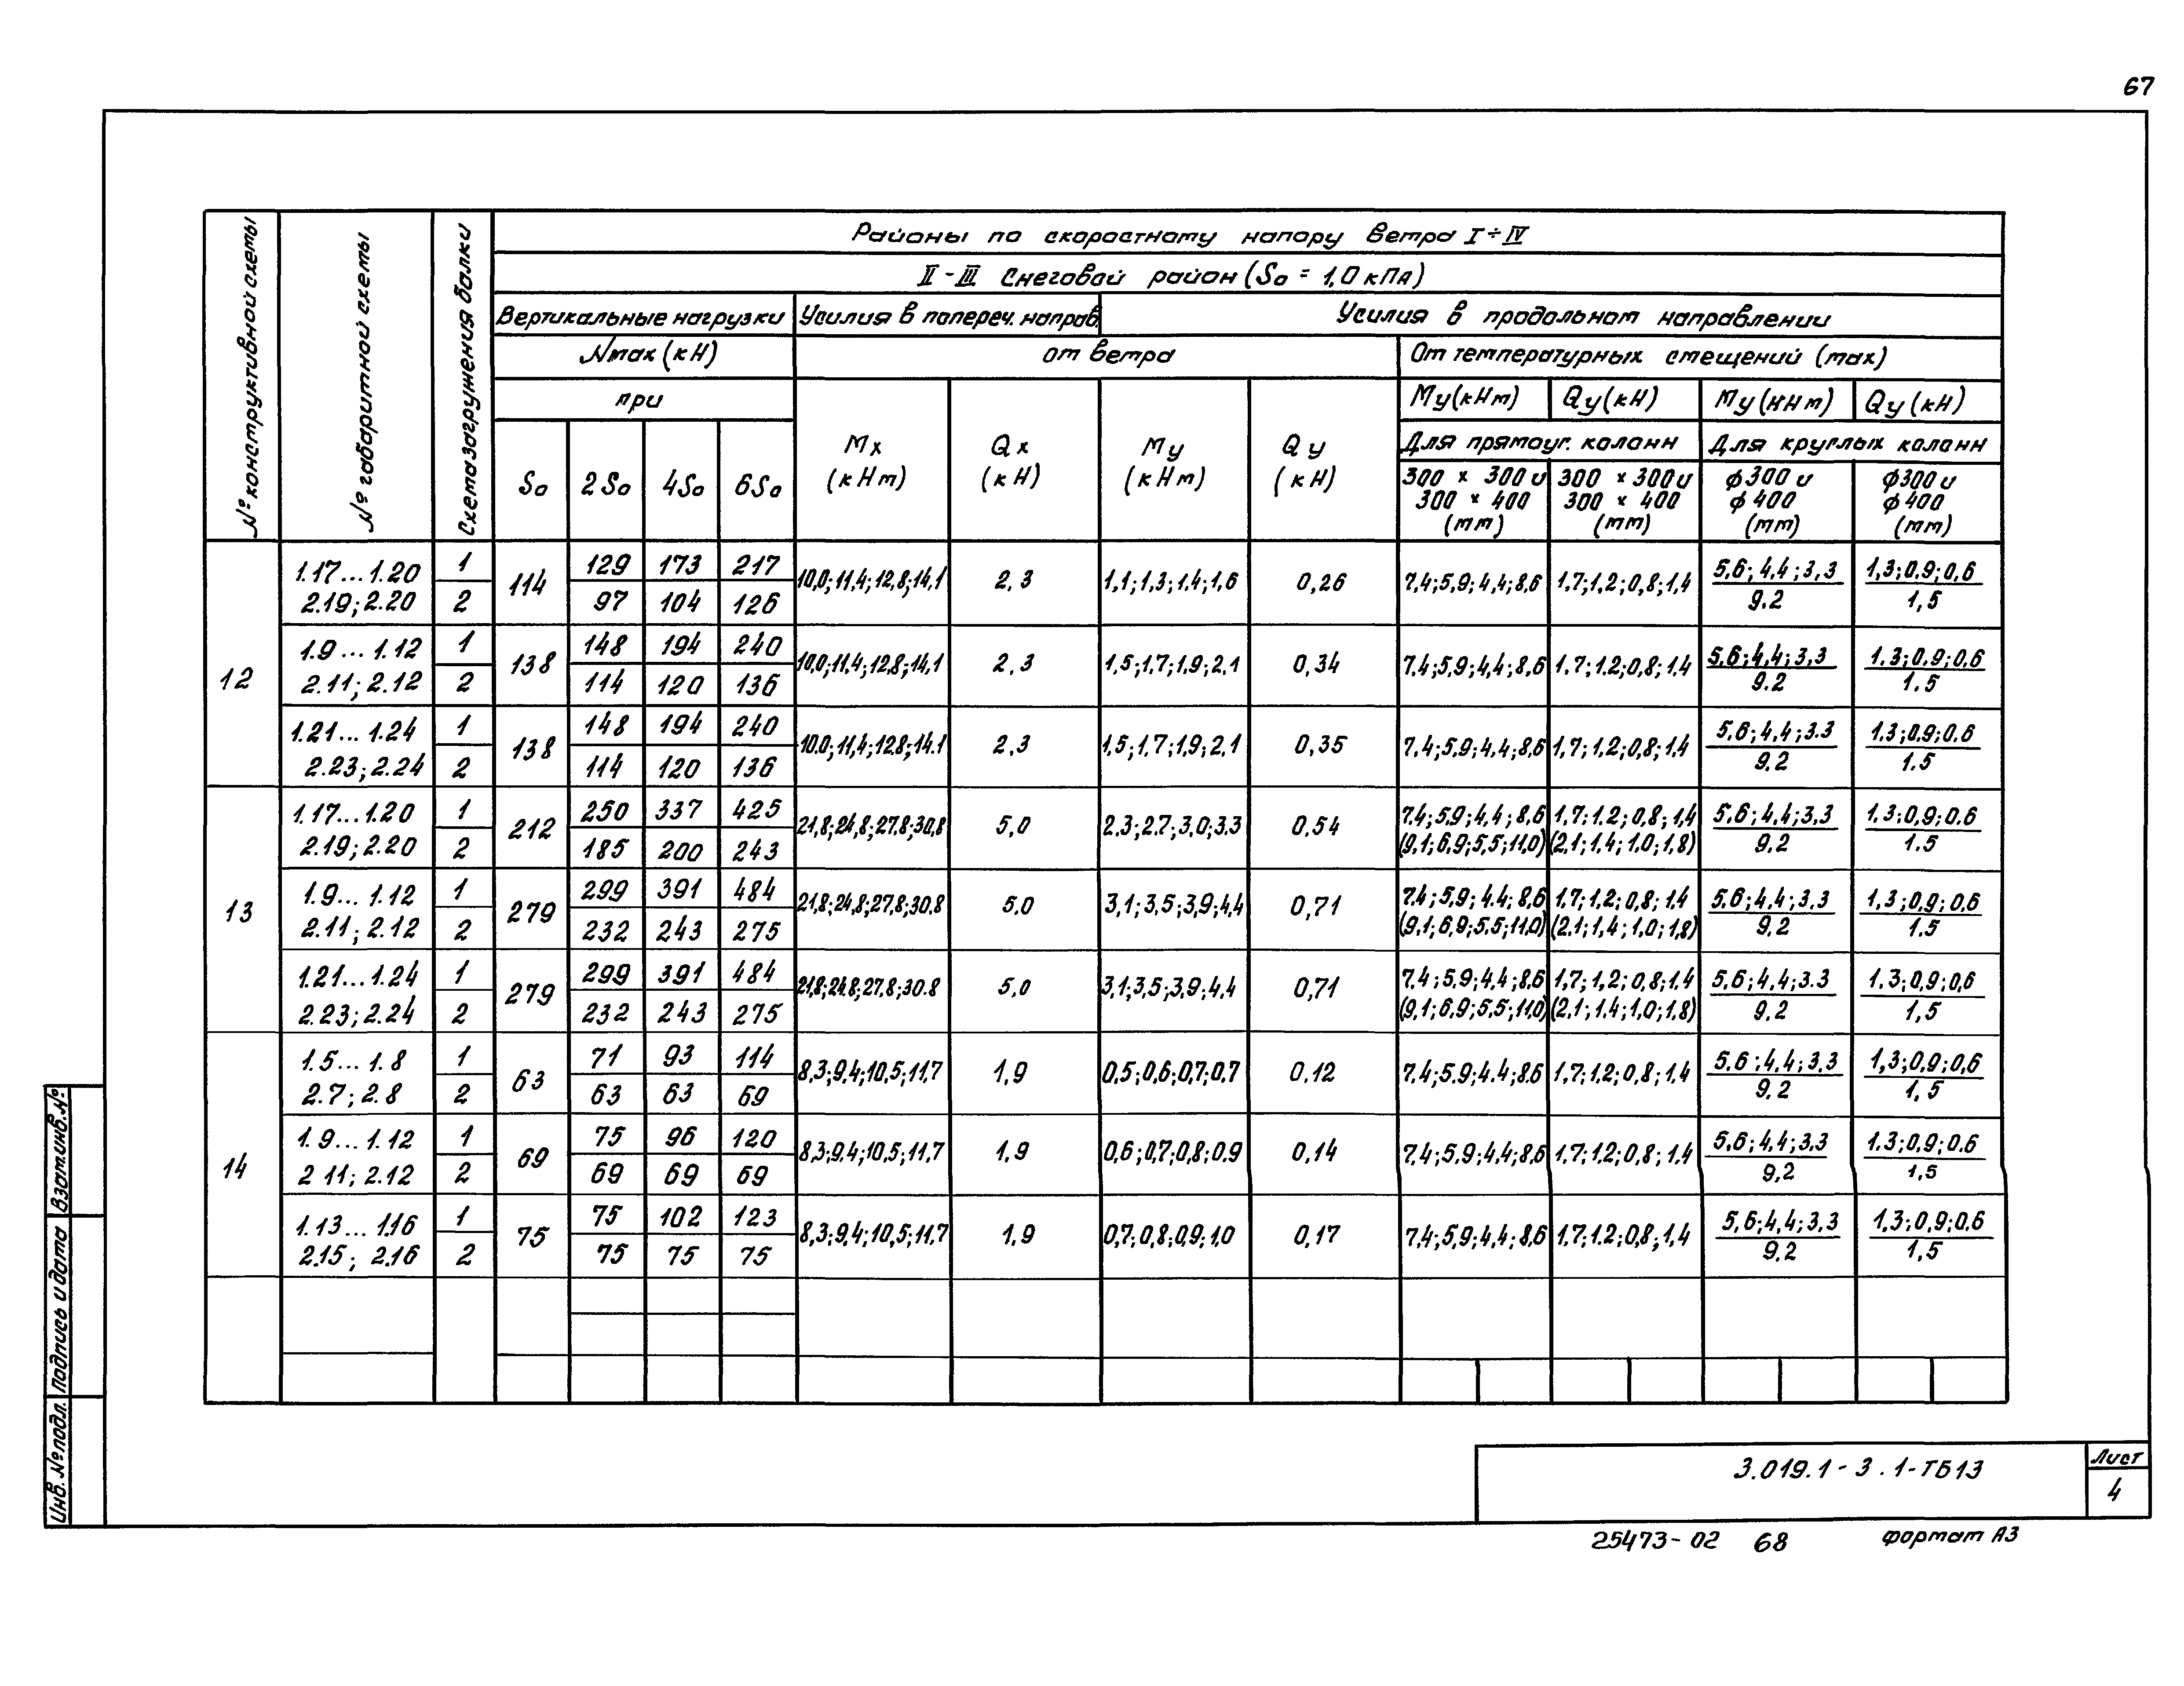 67
№ конструктивной схемы
№ габаритной схемы
Схема загружения балки
Районы по скоростному напору ветра I÷IV
II-III Снеговой район (So = 1,0 кПа)
Вертикальные нагрузки
Усилия в попереч. направ.
Усилия в продольном направлении
Nmax (кН)
от ветра
От температурных смещений (max)
при
So 2So 4So 6So
Mx (кНм)
Qx (кН)
My (кНм)
Qy (кН)
My(кНм) Qy(кН) My(кНм) Qy(кН)
Для прямоуг. колонн
Для круглых колонн
300 × 300 и 300 × 400 (mm)
300 × 300 и 300 × 400 (mm)
ф300 и ф400 (mm)
ф300 и ф400 (mm)
12
1.17...1.20 1 114 129 173 217 10,0;11,4;12,8;14,1 2,3 1,1;1,3;1,4;1,6 0,26 7,4;5,9;4,4;8,6 1,7;1,2;0,8;1,4 5,6;4,4;3,3 1,3;0,9;0,6
2.19;2.20 2 97 104 126 9.2 1,5
1.9...1.12 1 138 148 194 240 10,0;11,4;12,8;14,1 2,3 1,5;1,7;1,9;2,1 0,34 7.4;5,9;4,4;8,6 1,7;1,2;0,8;1,4 5,6;4,4;3,3 1,3;0,9;0,6
2.11;2.12 2 114 120 136 9.2 1.5
1.21...1.24 1 138 148 194 240 10.0;11,4;12.8;14.1 2,3 1,5;1,7;1,9;2,1 0,35 7,4;5,9;4,4;8,6 1,7;1,2;0,8;1,4 5,6;4,4;3.3 1.3;0,9;0.6
2.23;2.24 2 114 120 136 9.2 1.5
13
1.17...1.20 1 212 250 337 425 21,8;24,8;27,8;30,8 5,0 2.3;2.7;3,0;3.3 0,54 7.4;5,9;4,4;8,6 1,7;1.2;0,8;1,4 5,6;4,4;3,3 1,3;0,9;0.6
2.19;2.20 2 185 200 243 (9,1;6,9;5,5;11,0) (2,1;1,4;1,0;1,8) 9.2 1.5
1.9...1.12 1 279 299 391 484 21,8;24,8;27,8;30.8 5.0 3,1;3,5;3,9;4,4 0,71 7.4;5,9;4.4;8,6 1,7;1,2;0,8;1.4 5,6;4,4;3.3 1,3;0,9;0,6
2.11;2.12 2 232 243 275 (9,1;6,9;5.5;11,0) (2,1;1,4;1,0;1,8) 9,2 1.5
1.21...1.24 1 279 299 391 484 21,8;24.8;27,8;30.8 5,0 3,1;3,5;3,9;4,4 0,71 7,4;5,9;4,4;8,6 1,7;1,2;0,8;1.4 5,6;4,4;3.3 1.3;0,9;0,6
2.23;2.24 2 232 243 275 (9,1;6,9;5,5;11,0) (2,1;1,4;1,0;1,8) 9.2 1,5
14
1.5...1.8 1 63 71 93 114 8,3;9,4;10,5;11,7 1,9 0,5;0,6;0,7;0,7 0,12 7.4;5,9;4.4;8,6 1,7;1,2;0,8;1,4 5,6;4,4;3,3 1,3;0,9;0,6
2.7;2.8 2 63 63 69 9,2 1,5
1.9...1.12 1 69 75 96 120 8,3;9,4;10,5;11,7 1,9 0,6;0,7;0,8;0.9 0,14 7,4;5,9;4,4;8,6 1,7;1,2;0,8;1,4 5,6;4,4;3,3 1,3;0,9;0.6
2 11;2.12 2 69 69 69 9,2 1,5
1.13...1.16 1 75 75 102 123 8,3;9,4;10,5;11,7 1,9 0,7;0,8;0,9;1,0 0,17 7,4;5,9;4,4;8,6 1,7;1.2;0,8;1,4 5,6;4,4;3,3 1,3;0,9;0,6
2.15; 2.16 2 75 75 75 9.2 1,5
Инв. № подл.
Подпись и дата
Взам.инв.№
3.019.1-3.1-ТБ13
Лист
4
25473-02 68 Формат А3